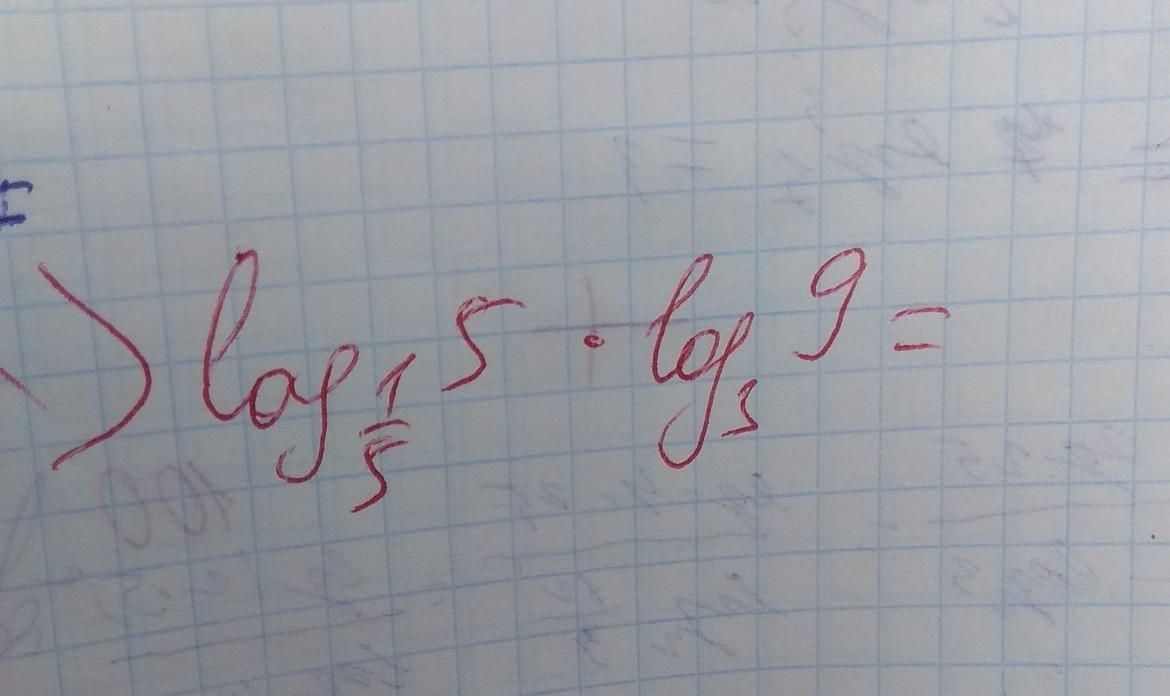 ) log_{\frac{1}{5}} 5 · log_3 9 =